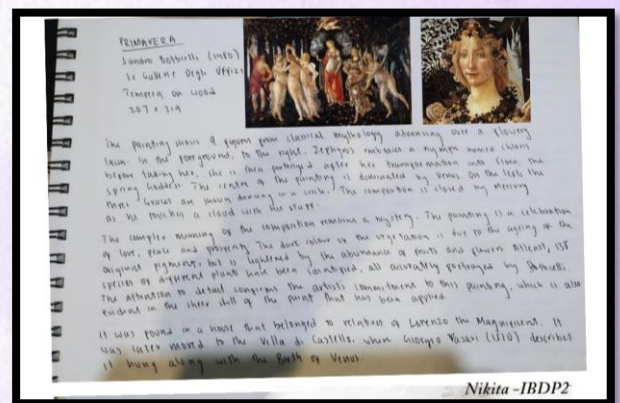 PRIMAVERA
Sandro Botticelli (1480)
Le Gallerie Degli Uffizi
Tempera on wood
207 x 319
The painting shows 9 figures from classical mythology advancing over a flowery
lawn. In the foreground, to the right, Zephyrus embraces a nymph named Chloris
before taking her; she is then portrayed after her transformation into Flora, the
spring Goddess. The centre of the painting is dominated by Venus. On the left the
three Graces are shown dancing in a circle. The composition is closed by Mercury
as he touches a cloud with his staff.
The complex meaning of the composition remains a mystery. The painting is a celebration
of love, peace and prosperity. The dark colour of the vegetation is due to the ageing of the
original pigment, but is lightened by the abundance of fruits and flowers. Atleast, 138
species of different plants have been identified, all accurately portrayed by Botticelli.
The attention to detail confirms the artist's commitment to this painting, which is also
evident in the sheer skill of the paint that has been applied.
It was found in a house that belonged to relatives of Lorenzo the Magnificent. It
was later moved to the Villa di Castello, where Giorgio Vasari (1550) describes
it hung along with the Birth of Venus.
Nikita -IBDP2